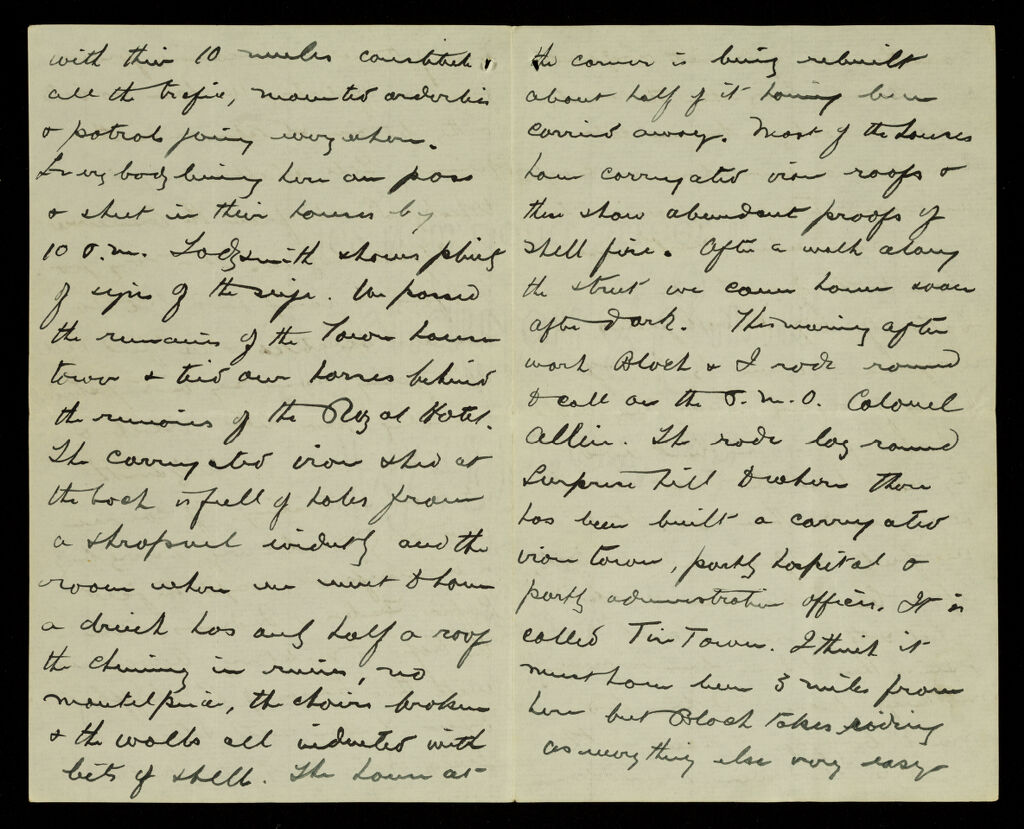 with their 10 mules constitute
all the traffic, mounted orderlies
& patrols going everywhere.
Everybody living here on pass
& shut in their houses by
10 P.m. Ladysmith shows plenty
of signs of the siege. We passed
the remains of the Town house
tower & tied our horses behind
the remains of the Royal Hotel.
The corrugated iron shed at
the back is full of holes from
a shrapnel evidently and the
room where we went to have
a drink has only half a roof
the chimney in ruins, no
mantelpiece, the chairs broken
& the walls all indented with
bits of shell. The house at
the corner is being rebuilt
about half of it having been
carried away. Most of the houses
have corrugated iron roofs &
these show abundant proofs of
shell fire. After a walk along
the street we came home soon
after dark. This morning after
work Bloch & I rode round
to call on the P.M.O. Colonel
Allin. The rode lay round
Surprise hill to where there
has been built a corrugated
iron town, partly hospital &
partly administration offices. It is
called Tin Town. I think it
must have been 3 miles from
here but Bloch takes riding
as everything else very easy